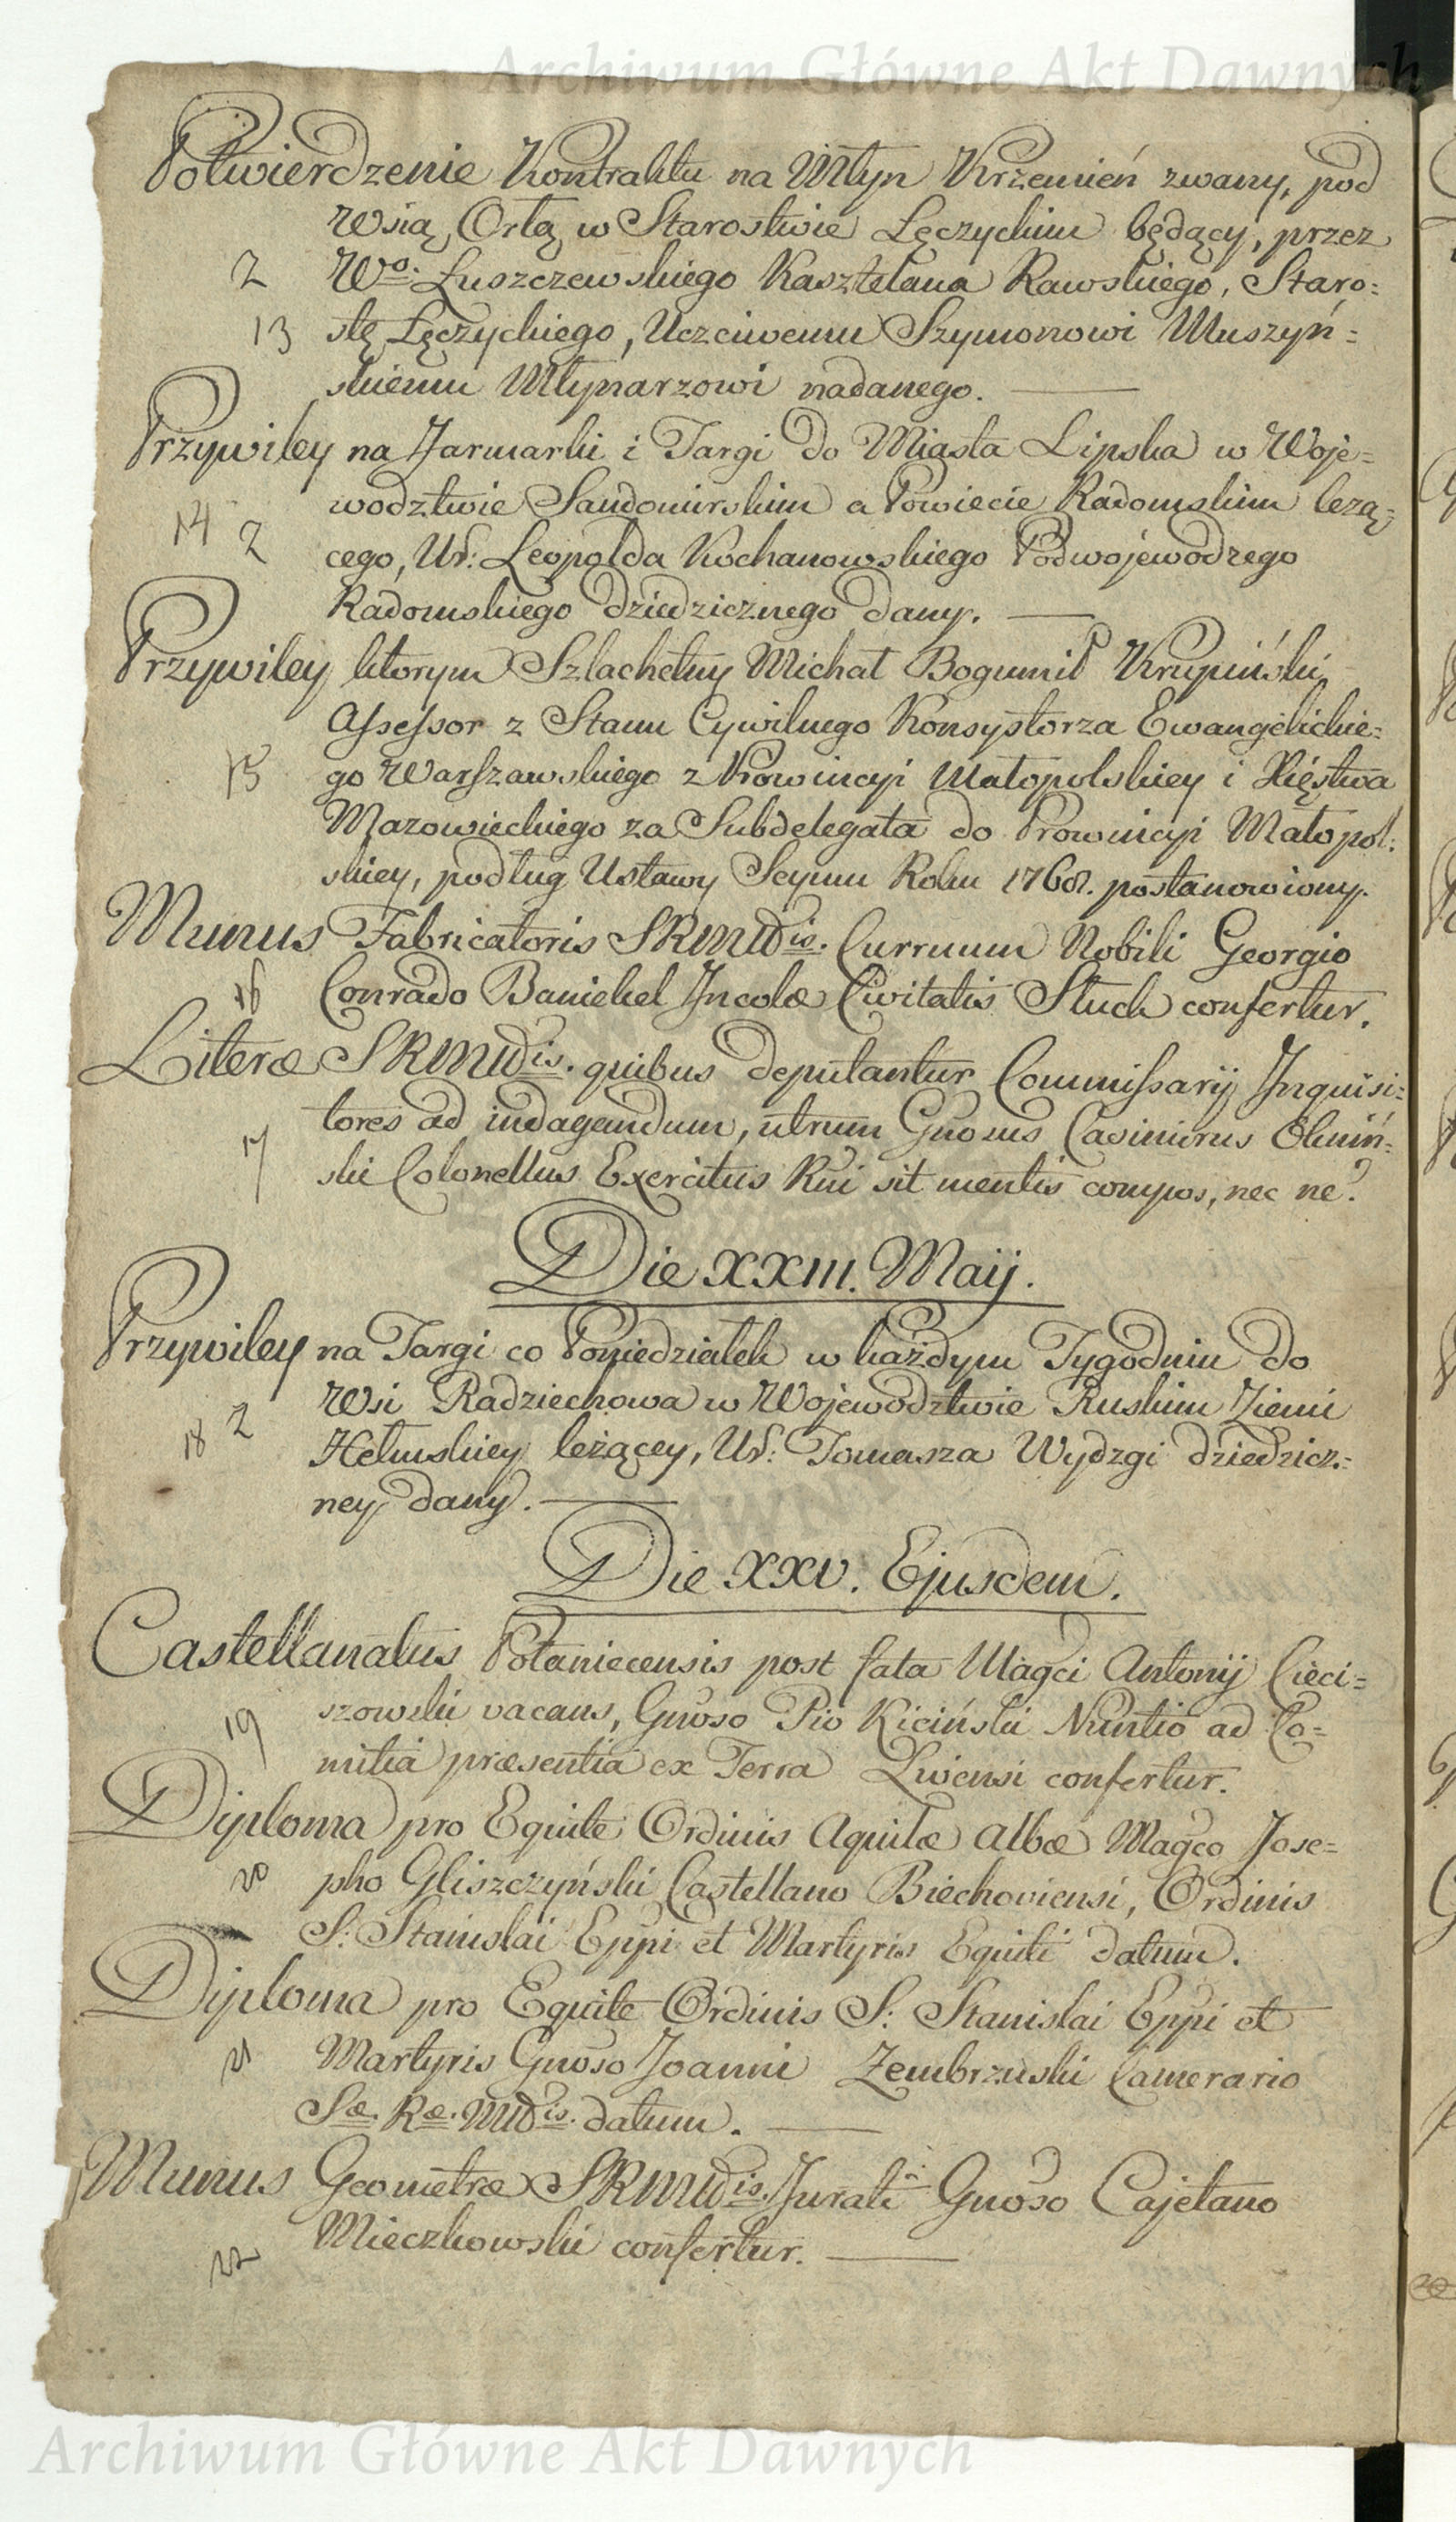 Archiwum Główne Akt Dawnych
Potwierdzenie Kontraktu na Młyn Krzemień zwany, pod
Wsią Orłą w Starostwie Łęczyckim będący, przez
2 Wo. Łuszczewskiego Kasztelana Rawskiego, Staro=
13 stę Łęczyckiego, Uczciwemu Szymonowi Muszyń=
skiemu Młynarzowi nadanego.
Przywiley na Jarmarki i Targi do Miasta Lipska w Woje=
wodztwie Sandomirskim a Powiecie Radomskim leżą=
14 2 cego, Ur: Leopolda Kochanowskiego Podwojewodzego
Radomskiego dziedzicznego dany.
Przywiley ktorym Szlachetny Michał Bogumił Krupiński,
Assessor z Stanu Cywilnego Konsystorza Ewangelickie=
15 go Warszawskiego z Prowincyi Małopolskiey i Xięstwa
Mazowieckiego za Subdelegata do Prowincyi Małopol=
skiey, podług Ustawy Seymu Roku 1768. postanowiony.
Munus Fabricatoris SRMWDis. Curruum Nobili Georgio
16 Conrado Baniekel Incolæ Civitatis Stuck confertur.
Literæ SRMWDis. quibus deputantur Commissarij Inquisi=
tores ad indagandum, utrum Gnosus Casimirus Olmiń=
17 ski Colonellus Exercitus Rni sit mentis compos, nec ne?
Die XXIII. Maij.
Przywiley na Targi co Poniedziałek w każdym Tygodniu do
18 2 Wsi Radziechowa w Wojewodztwie Ruskim Ziemi
Hełmskiey leżącey, Ur: Tomasza Wydzgi dziedzicz=
ney dany.
Die XXV. Ejusdem.
Castellanatus Połaniecensis post fata Magci Antonij Cieci=
19 szowski vacans, Gnoso Pio Kiciński Nuntio ad Co=
mitia præsentia ex Terra Livensi confertur.
Diploma pro Equite Ordinis Aquilæ Albæ Magco Jose=
20 pho Gliszczyński Castellano Biechoviensi, Ordinis
S: Stanislai Eppi et Martyris Equiti datum.
Diploma pro Equite Ordinis S: Stanislai Eppi et
21 Martyris Gnoso Joanni Zembrzuski Camerario
Sæ. Ræ. MWDis. datum.
Munus Geometræ SRMWDis. Jurati Gnoso Cajetano
22 Mieczkowski confertur.
Archiwum Główne Akt Dawnych